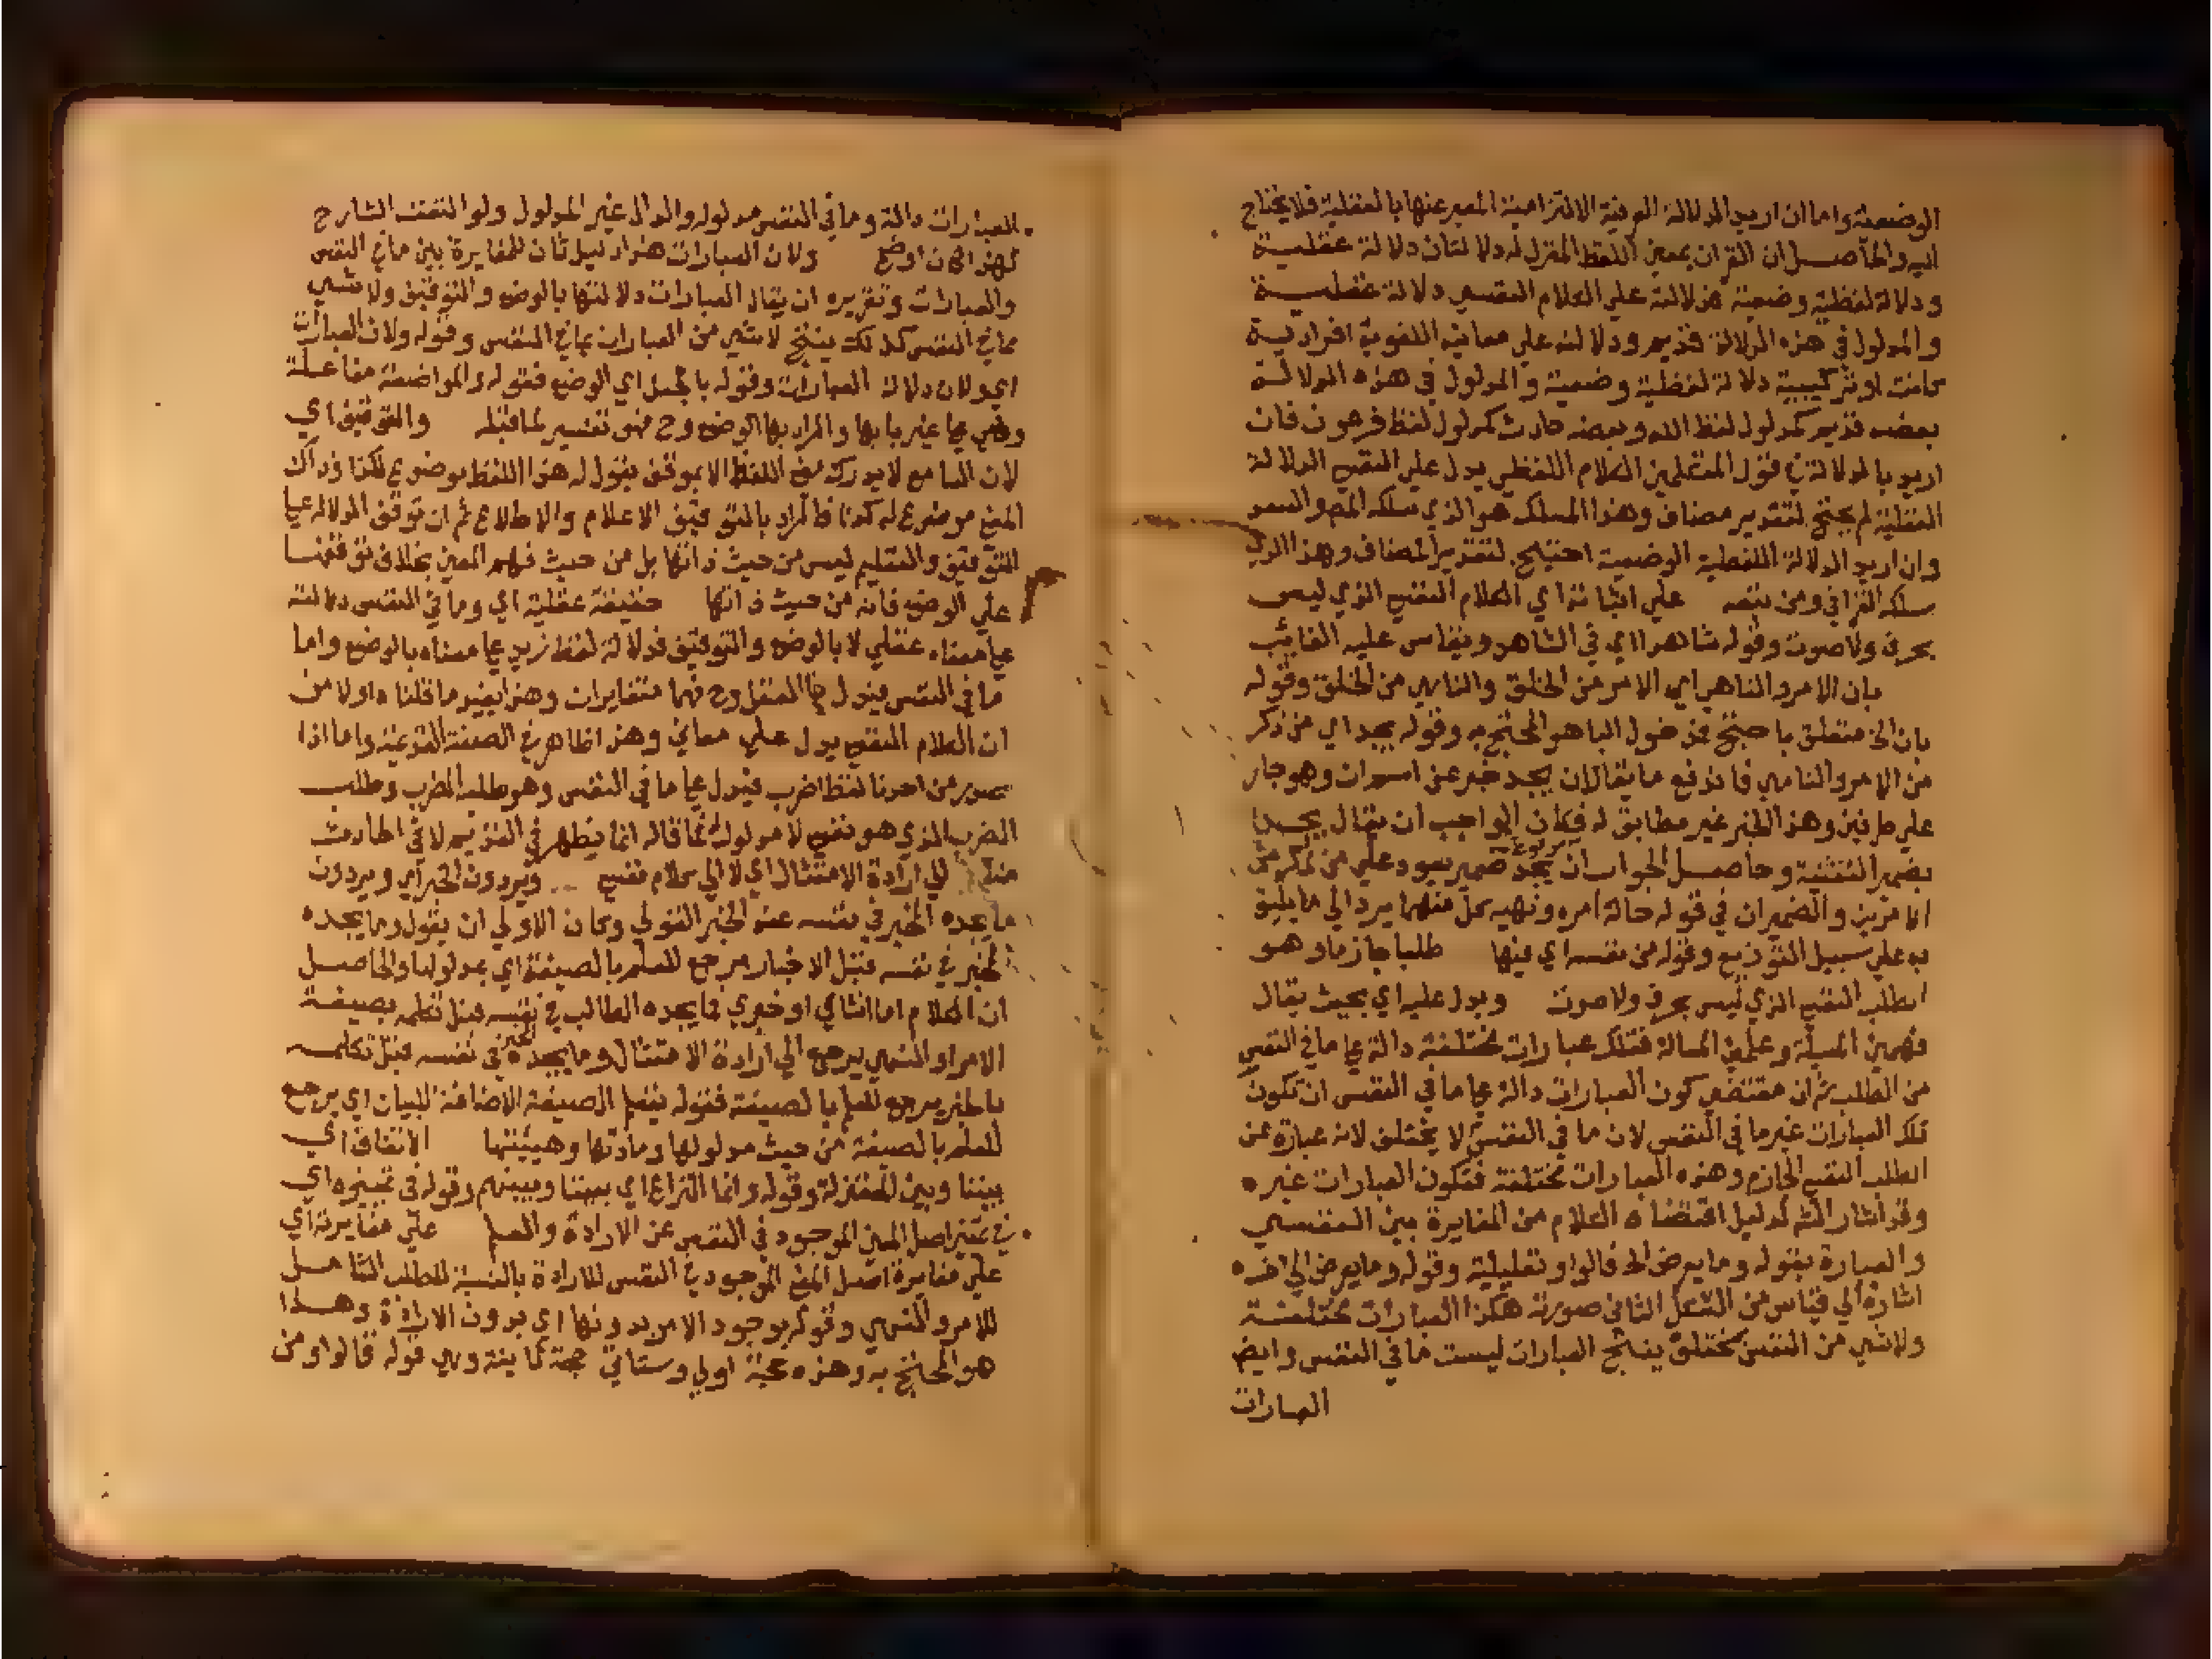 الوضعية واما ان اريد الدلالة العرفية الالتزامية المعبر عنها بالعقلية فلا يحتاج
اليه والحاصل ان القران بمعني اللفظ المنزل له دلالتان دلالة عقلية
ودلالة لفظية وضعية فدلالته علي الكلام النفسي دلالة عقلية
والمدلول في هذه الدلالة قديم ودلالته علي معانيه اللغوية افرادية
كانت او تركيبية دلالة لفظية وضعية والمدلول في هذه الدلالة
بعضه قديم كمدلول لفظ الله وبعضه حادث كمدلول لفظ فرعون فان
اريد بالدلالة في قول المتكلمين الكلام اللفظي يدل علي النفسي الدلالة
العقلية لم يحتج لتقدير مضاف وهذا المسلك هو الذي سلكه المص والسعد
وان اريد الدلالة اللفظية الوضعية احتيج لتقدير المضاف وهذا الذي
سلكه القرافي ومن تبعه علي اثباته اي الكلام النفسي الذي ليس
بحرف ولا صوت وقوله شاهدا اي في الشاهد ويقاس عليه الغائب
بان الامر والناهي اي الامر من الخلق والناهي من الخلق وقوله
بان الخ متعلق باحتج فدخول البا هو المحتج به وقوله يجد اي من ذكر
من الامر والناهي فاندفع ما يقال ان يجد خبر عن اسم ان وهو جار
علي طرفين وهذا الخبر غير مطابق له فكان الواجب ان يقال يجدا
بضمير التثنية وحاصل الجواب ان يجد ضمير يعود علي من ذكر من
الامرين والضميران في قوله حالة امره ونهيه كل منهما يرد الي ما يليق
به علي سبيل التوزيع وقوله من نفسه اي فيها طلبا جازما وهو
الطلب النفسي الذي ليس بحرف ولا صوت ويدل عليه اي بحيث يقال
فهمني المسيلة وعلمني المسالة فتلك عبارات مختلفة دالة علي ما في النفس
من الطلب ثم ان مقتضي كون العبارات دالة علي ما في النفس ان تكون
تلك العبارات غير ما في النفس لان ما في النفس لا يختلف لانه عبارة عن
الطلب النفسي الجازم وهذه العبارات مختلفة فتكون العبارات غيره
وقد اشار الش لدليل اقتضاه الكلام من المغايرة بين النفسي
والعبارة بقوله وما يعرض الخ فالواو تعليلية وقوله وما يعرض الي اخره
اشارة الي قياس من الشكل الثاني صورته هكذا العبارات مختلفة
ولا شي من النفس بمختلف ينتج العبارات ليست ما في النفس وايض
العبارات
العبارات دالة وما في النفس مدلوله والدال غير المدلول ولو التفت الشارح
لهذا كان اوضح ولان العبارات هذا دليل ثان للمغايرة بين ما في النفس
والعبارات وتقريره ان يقال العبارات دلالتها بالوضع والتوقيف ولا شي
مما في النفس كذلك ينتج لا شي من العبارات بما في النفس وقوله ولان العبارات
اي ولان دلالة العبارات وقوله بالجعل اي الوضع فقوله والمواضعة مفاعلة
وهي علي غير بابها والمراد بها الوضع وح فهو تفسير لما قبله والتوقيف اي
لان السامع لا يدرك معني اللفظ الا بموقف يقول له هذا اللفظ موضوع لكذا وذاك
المعني موضوع له كذا فالمراد بالتوقيف الاعلام والاطلاع ثم ان توقف الدلالة علي
التوقيف والتعليم ليس من حيث ذاتها بل من حيث فهم المعني بخلاف توقفها
علي الوضع فانه من حيث ذاتها حقيقة عقلية اي وما في النفس دلالته
علي معناه عقلي لا بالوضع والتوقيف فدلالة لفظ زيد علي معناه بالوضع واما
ما في النفس فيدل العقل وح فهما متغايرات وهذا يفيد ما قلناه اولا من
ان الكلام النفسي يدل علي معاني وهذا ظاهر في الصفة القديمة واما اذا
صدر من احدنا لفظ اضرب فيدل علي ما في النفس وهو طلب الضرب وطلب
الضرب الذي هو نفسي لا مدلول له فما قاله انما يظهر في القديم لا في الحادث
الي ارادة الامتثال اي لا الي كلام نفسي ويردون الخبر اي ويردون
ما يجده المخبر في نفسه عند الخبر القولي وكان الاولي ان يقول وما يجده
المخبر في نفسه قبل الاخبار مرجع للعلم بالصيغة اي بمدلولها والحاصل
ان الكلام اما انشاي او خبري فما يجده الطالب في نفسه قبل تكلمه بصيغة
الامر او النهي يرجع الي ارادة الامتثال وما يجده المخبر في نفسه قبل تكلمه
بالخبر يرجع للعلم بالصيغة فقوله بنظم الصيغة الاضافة للبيان اي يرجع
للعلم بالصيغة من حيث مدلولها ومادتها وهيئتها الاتفاق اي
بيننا وبين المعتزلة وقوله وانما النزاع اي بيننا وبينهم وقوله في تمييزه اي
في تمييز اصل المعني الموجود في النفس عن الارادة والعلم علي مغايرته اي
علي مغايرة اصل المعني الموجود في النفس للارادة بالنسبة للطلب الشامل
للامر والنهي وقوله بوجود الامر بدونها اي بدون الارادة وهذا
هو المحتج به وهذه حجة اولي وستاتي حجة ثانية وهي قوله قالوا ومن